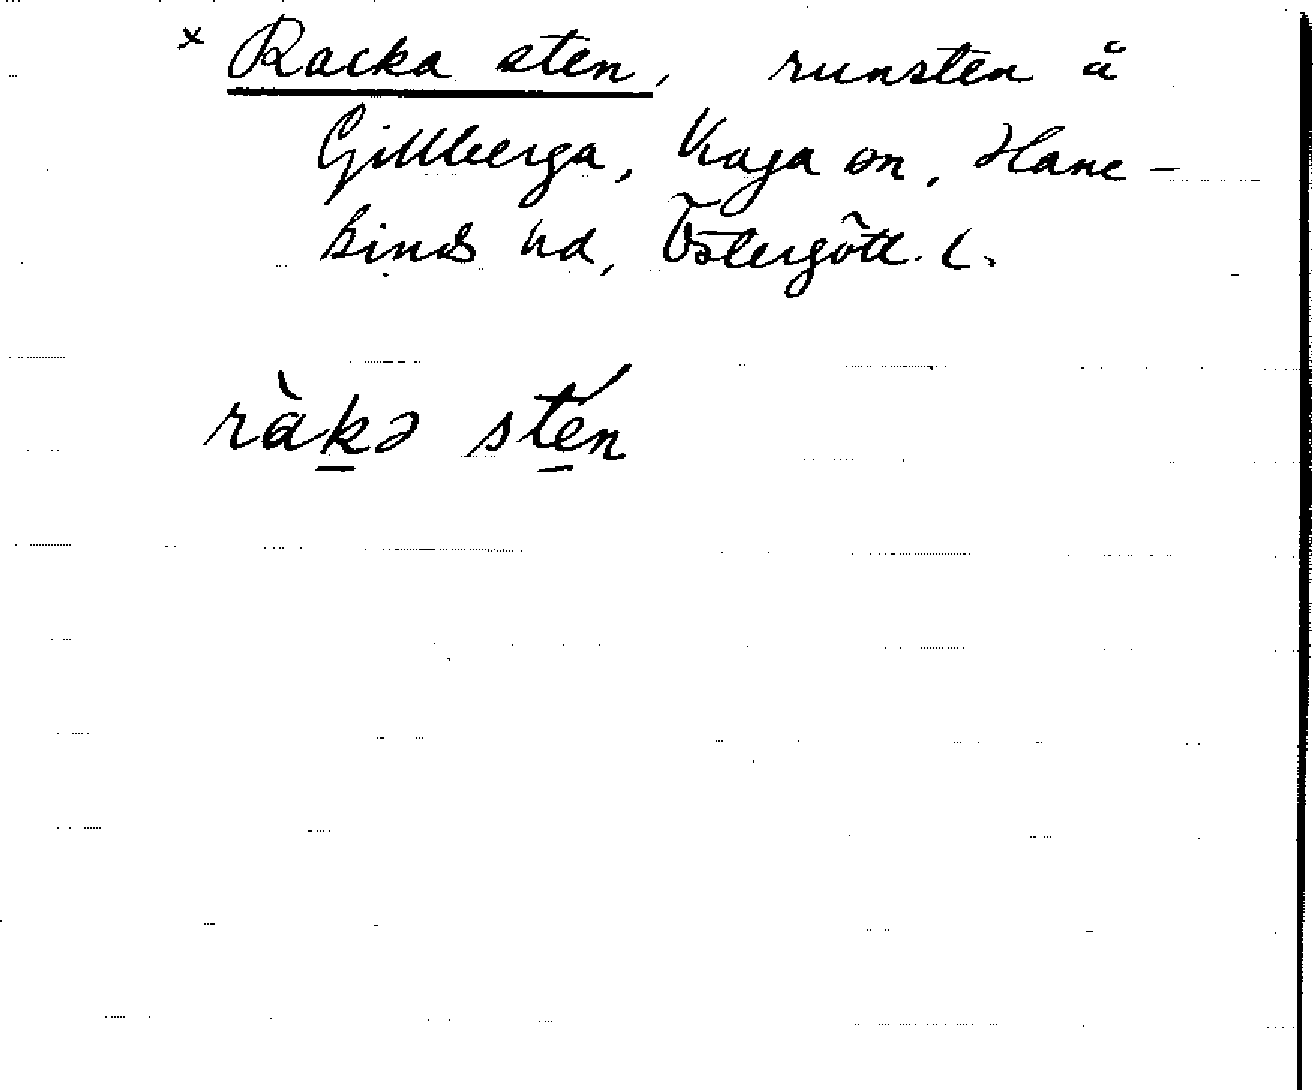 x Racka sten, runsten å
Gillberga, Kaga sn, Hane-
kinds hd, Östergötl. l.
ràkə stén